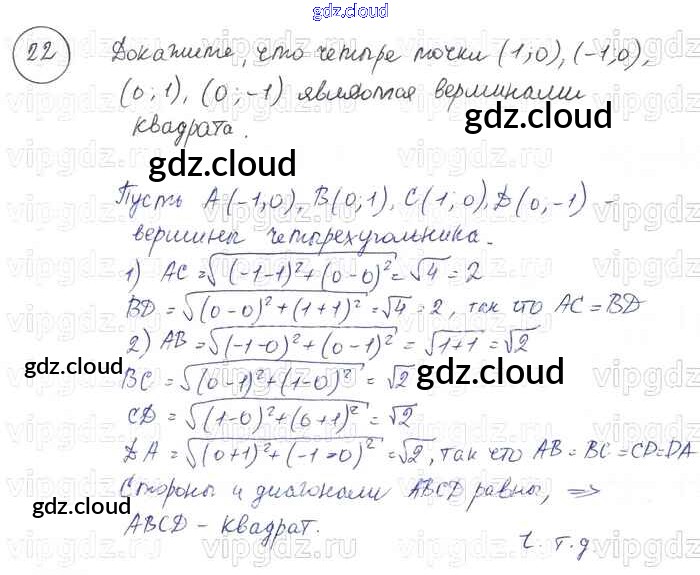 gdz.cloud
22 Докажите, что четыре точки (1;0), (-1;0),
(0;1), (0;-1) являются вершинами
квадрата.
gdz.cloud
gdz.cloud
Пусть A(-1;0), B(0;1), C(1;0), D(0;-1) -
вершины четырехугольника.
1) AC = √((-1-1)²+(0-0)²) = √4 = 2
BD = √((0-0)²+(1+1)²) = √4 = 2, так что AC = BD
2) AB = √((-1-0)²+(0-1)²) = √(1+1) = √2
gdz.cloud
gdz.cloud
BC = √((0-1)²+(1-0)²) = √2
CD = √((1-0)²+(0+1)²) = √2
DA = √((0+1)²+(-1-0)²) = √2, так что AB = BC = CD = DA
Стороны и диагонали ABCD равны, =>
gdz.cloud
gdz.cloud
ABCD - квадрат.
ч.т.д